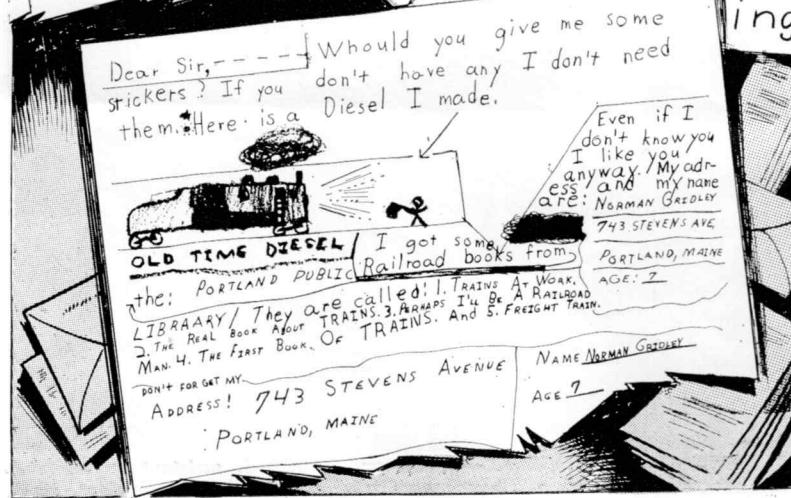 ing
Dear Sir,----- Whould you give me some
stickers? If you don't have any I don't need
them. Here is a Diesel I made.
Even if I
don't know you
I like you
anyway. My adr-
ess and my name
are: NORMAN GRIDLEY
743 STEVENS AVE,
PORTLAND, MAINE
AGE: 7
OLD TIME DIESEL
I got some
Railroad books from
the: PORTLAND PUBLIC
LIBRAARY/ They are called: 1. TRAINS AT WORK.
2. THE REAL BOOK ABOUT TRAINS. 3. PERHAPS I'LL BE A RAILROAD
MAN. 4. THE FIRST BOOK OF TRAINS. And 5. FREIGHT TRAIN.
DON'T FOR GET MY
ADDRESS! 743 STEVENS AVENUE
PORTLAND, MAINE
NAME NORMAN GRIDLEY
AGE 7